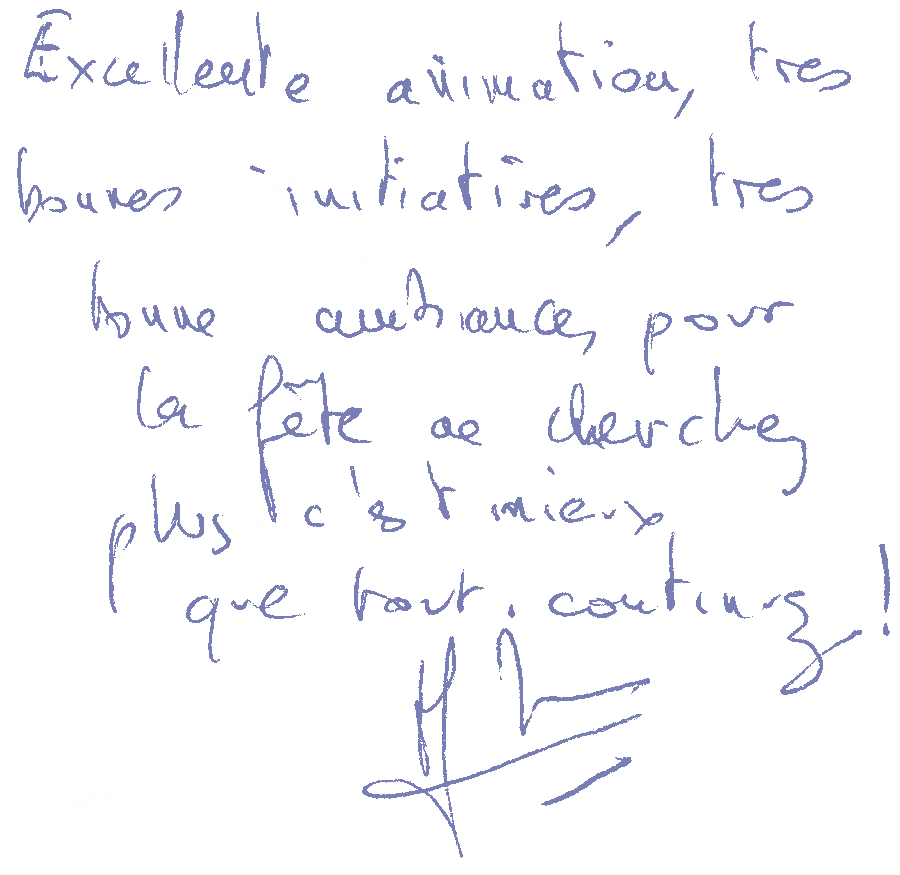 Excellente animation, tres
bonnes initiatives, tres
bonne ambiance, pour
la fête ne cherchez
plus c'est mieux
que tout. continuez !